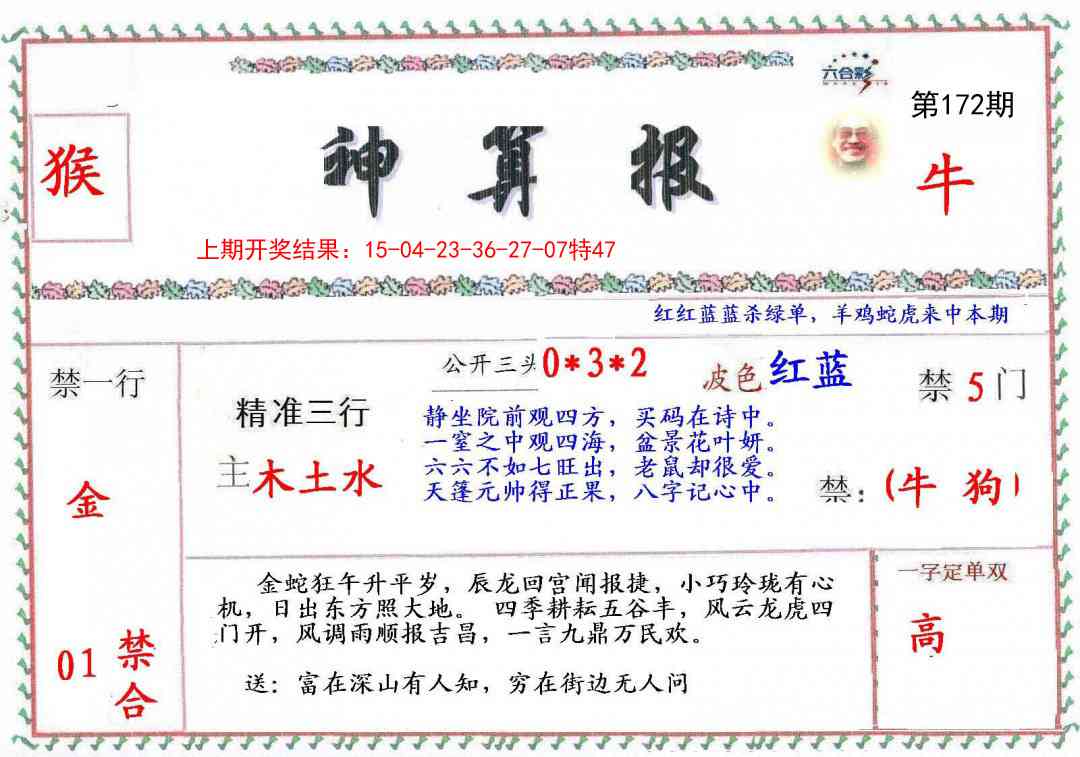 六合彩
第172期
猴
神算报
牛
上期开奖结果：15-04-23-36-27-07特47
红红蓝蓝杀绿单，羊鸡蛇虎来中本期
禁一行
公开三头0*3*2
波色红蓝
禁5门
精准三行
主木土水
静坐院前观四方，买码在诗中。
一窒之中观四海，盆景花叶妍。
六六不如七旺出，老鼠却很爱。
天篷元帅得正果，八字记心中。
禁：(牛 狗)
金
金蛇狂午升平岁，辰龙回宫闻报捷，小巧玲珑有心
机，日出东方照大地。 四季耕耘五谷丰，风云龙虎四
门开，风调雨顺报吉昌，一言九鼎万民欢。
送：富在深山有人知，穷在街边无人问
一字定单双
高
01禁合